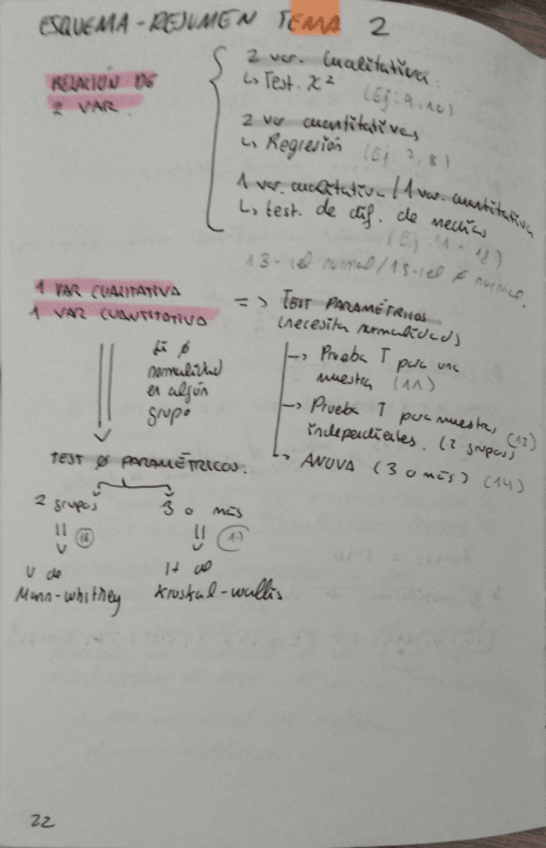 ESQUEMA - RESUMEN TEMA 2
RELACIÓN DE
2 VAR.
2 var. Cualitativa.
↳ Test. X²
(Ej: 9, 10)
2 var cuantitativas
↳ Regresión (Ej 7, 8)
1 var. cualitativa / 1 var. cuantitativa
↳ test. de dif. de medias
(Ej. 11 - 18)
13- normal / 15- normal.
1 VAR CUALITATIVA
1 VAR CUANTITATIVA
=> TEST PARAMÉTRICOS
(necesita normalidad)
→ Prueba T para una
muestra (11)
→ Prueba T para muestras (12)
independientes. (2 grupos)
↳ ANOVA (3 o más) (14)
Si ø
normalidad
en algún
grupo
TEST Ø PARAMÉTRICOS.
2 grupos 3 o más
16 17
U de H de
Mann-whitney Kruskal-wallis
22